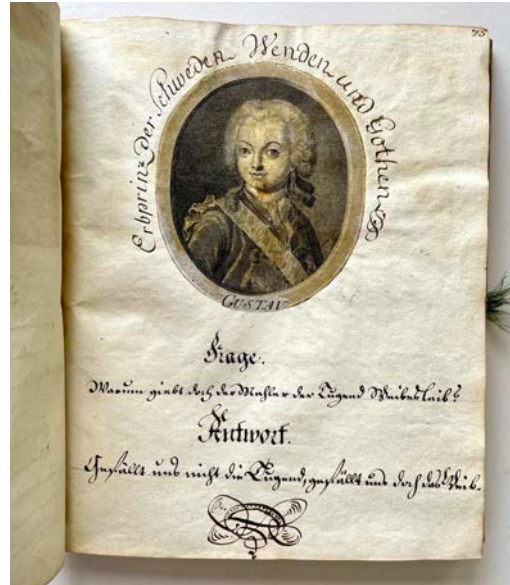 75
Erbprinz der Schweden Wenden und Gothen
GUSTAV
Frage.
Warum giebt doch der Mahler der Tugend Weibesleib?
Antwort.
Gefällt uns nicht die Tugend, gefällt uns doch das Weib.